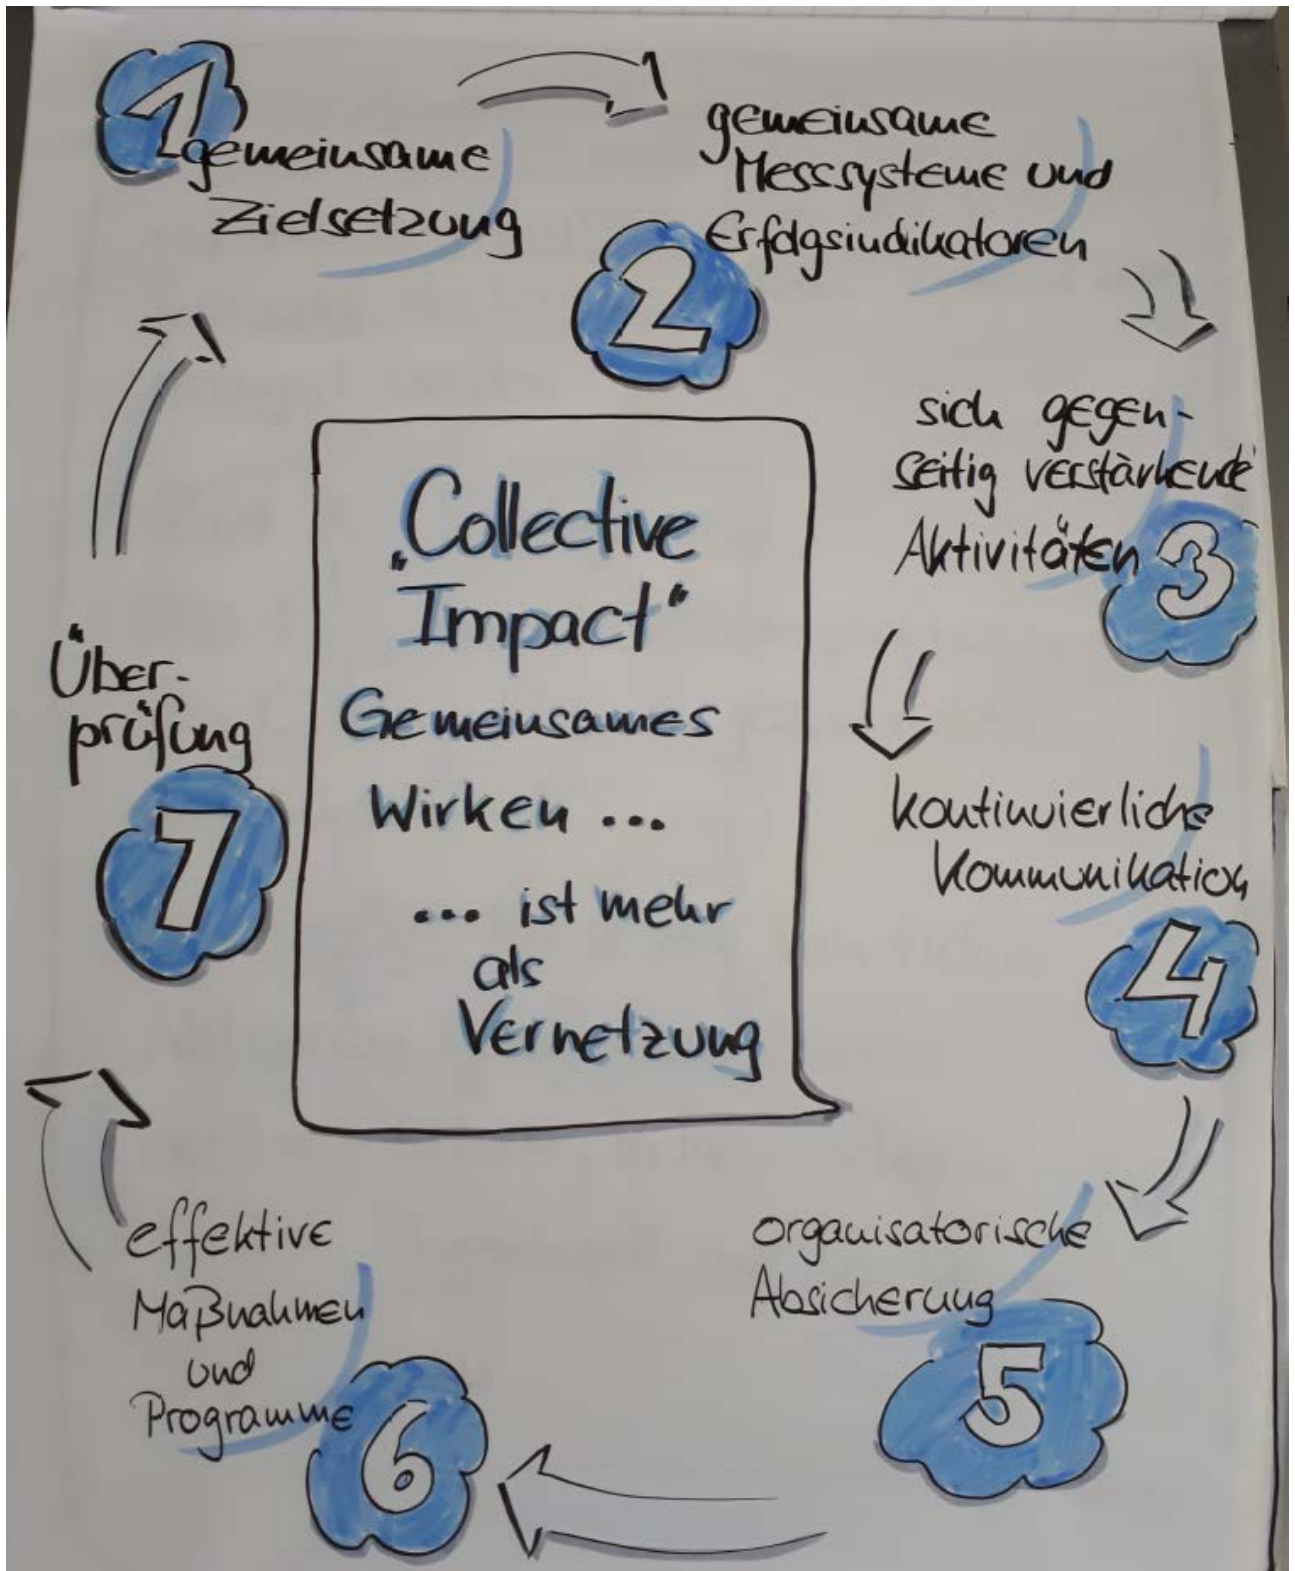 1
gemeinsame
Zielsetzung
gemeinsame
Messsysteme und
Erfolgsindikatoren
2
sich gegen-
seitig verstärkende
Aktivitäten
3
kontinuierliche
Kommunikation
4
organisatorische
Absicherung
5
effektive
Maßnahmen
und
Programme
6
Über-
prüfung
7
„Collective
Impact"
Gemeinsames
Wirken ...
... ist mehr
als
Vernetzung